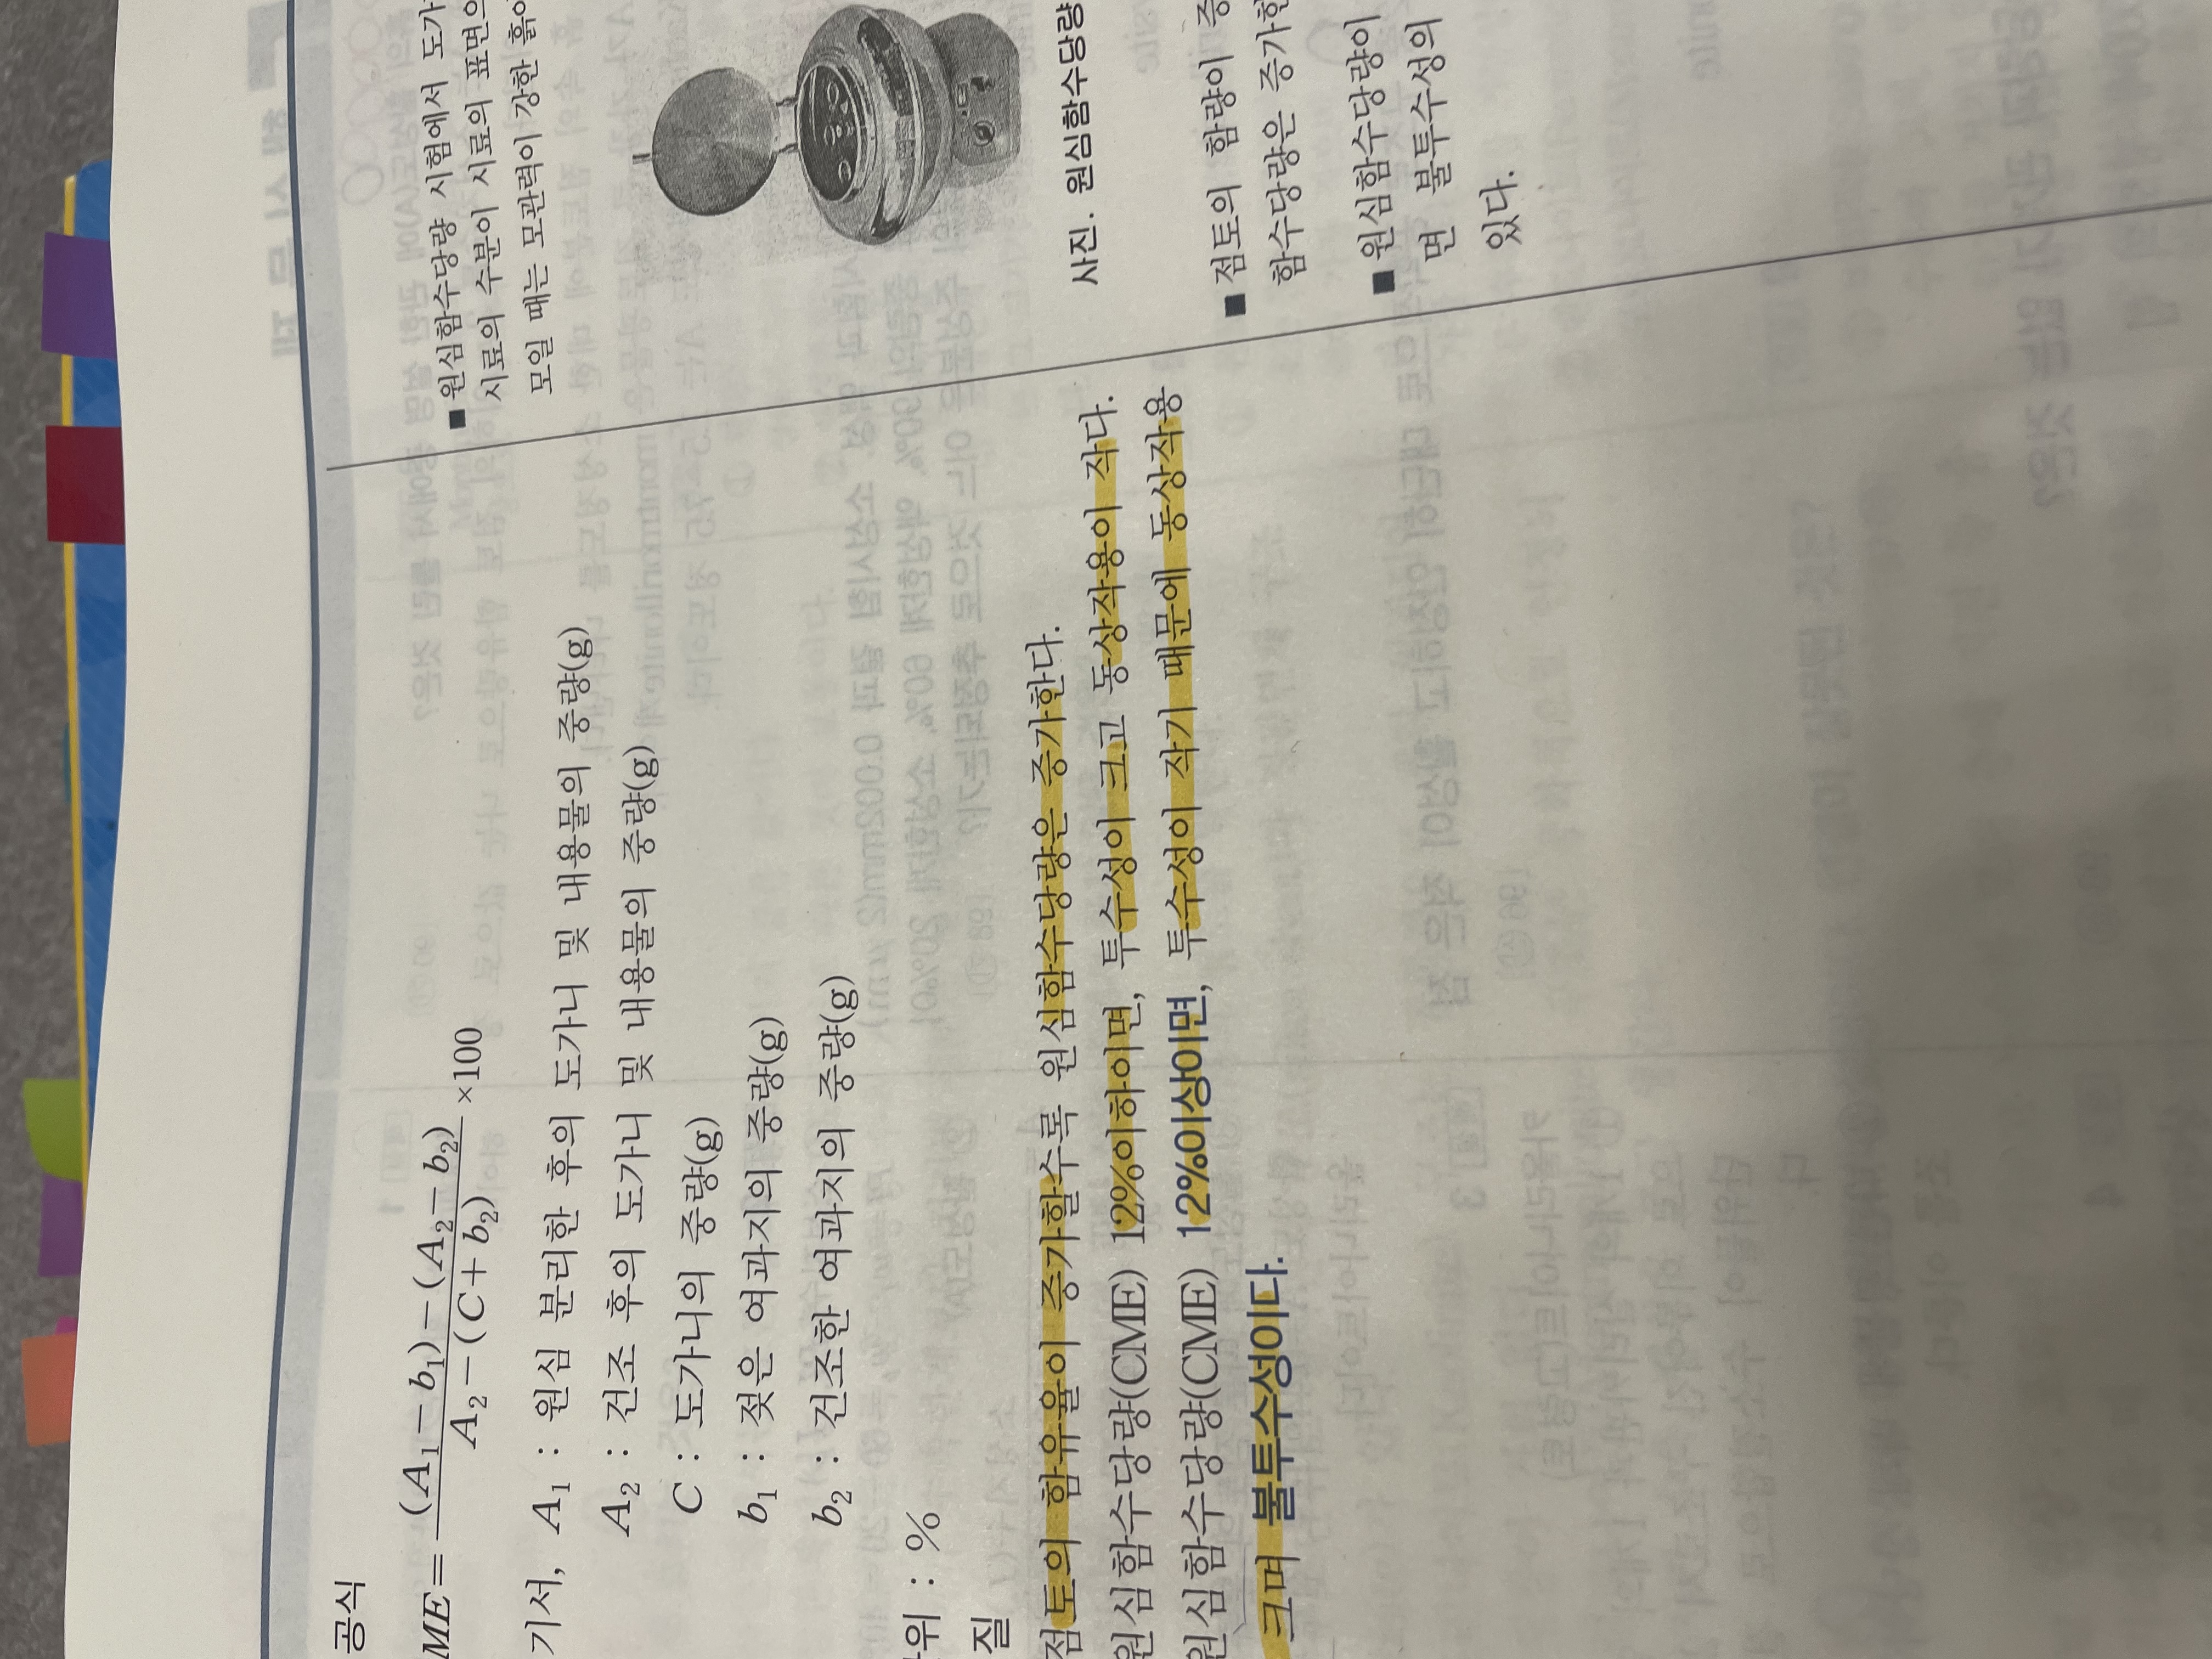 공식
ME = (A₁ − b₁) − (A₂ − b₂) / A₂ − (C + b₂) ×100
기서, A₁ : 원심 분리한 후의 도가니 및 내용물의 중량(g)
A₂ : 건조 후의 도가니 및 내용물의 중량(g)
C : 도가니의 중량(g)
b₁ : 젖은 여과지의 중량(g)
b₂ : 건조한 여과지의 중량(g)
위 : %
질
점토의 함유율이 증가할수록 원심함수당량은 증가한다.
원심함수당량(CME) 12%이하이면, 투수성이 크고 동상작용이 작다.
원심함수당량(CME) 12%이상이면, 투수성이 작기 때문에 동상작용
크며 불투수성이다.
■ 원심함수당량 시험에서 도가
시료의 수분이 시료의 표면으
모일 때는 모관력이 강한 흙이
사진. 원심함수당량
■ 점토의 함량이 증
함수당량은 증가한
■ 원심함수당량이
면 불투수성의
있다.